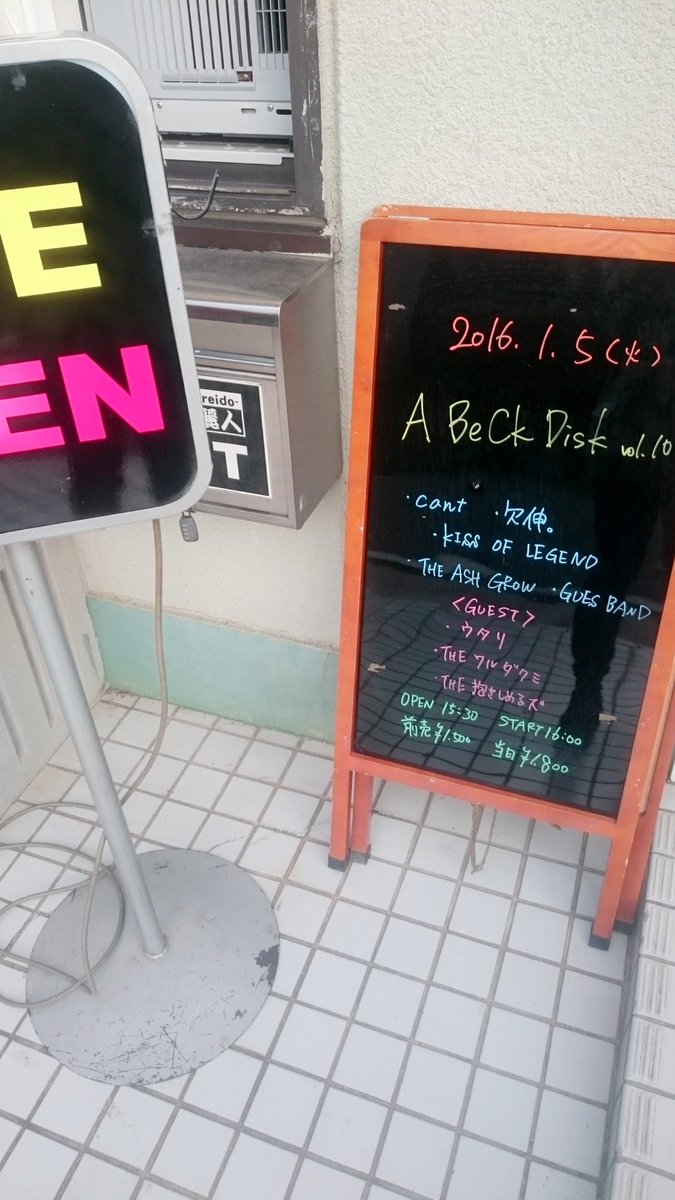 E
EN
reido-
麗人
T
2016. 1. 5 (火)
A BeCk Disk vol.10
・cant ・欠伸。
・KISS OF LEGEND
・THE ASH GROW ・GUES BAND
<GUEST>
・ウタリ
・THE ワルダクミ
・THE 抱きしめるズ
OPEN 15:30 START 16:00
前売¥1.500 当日¥1.800